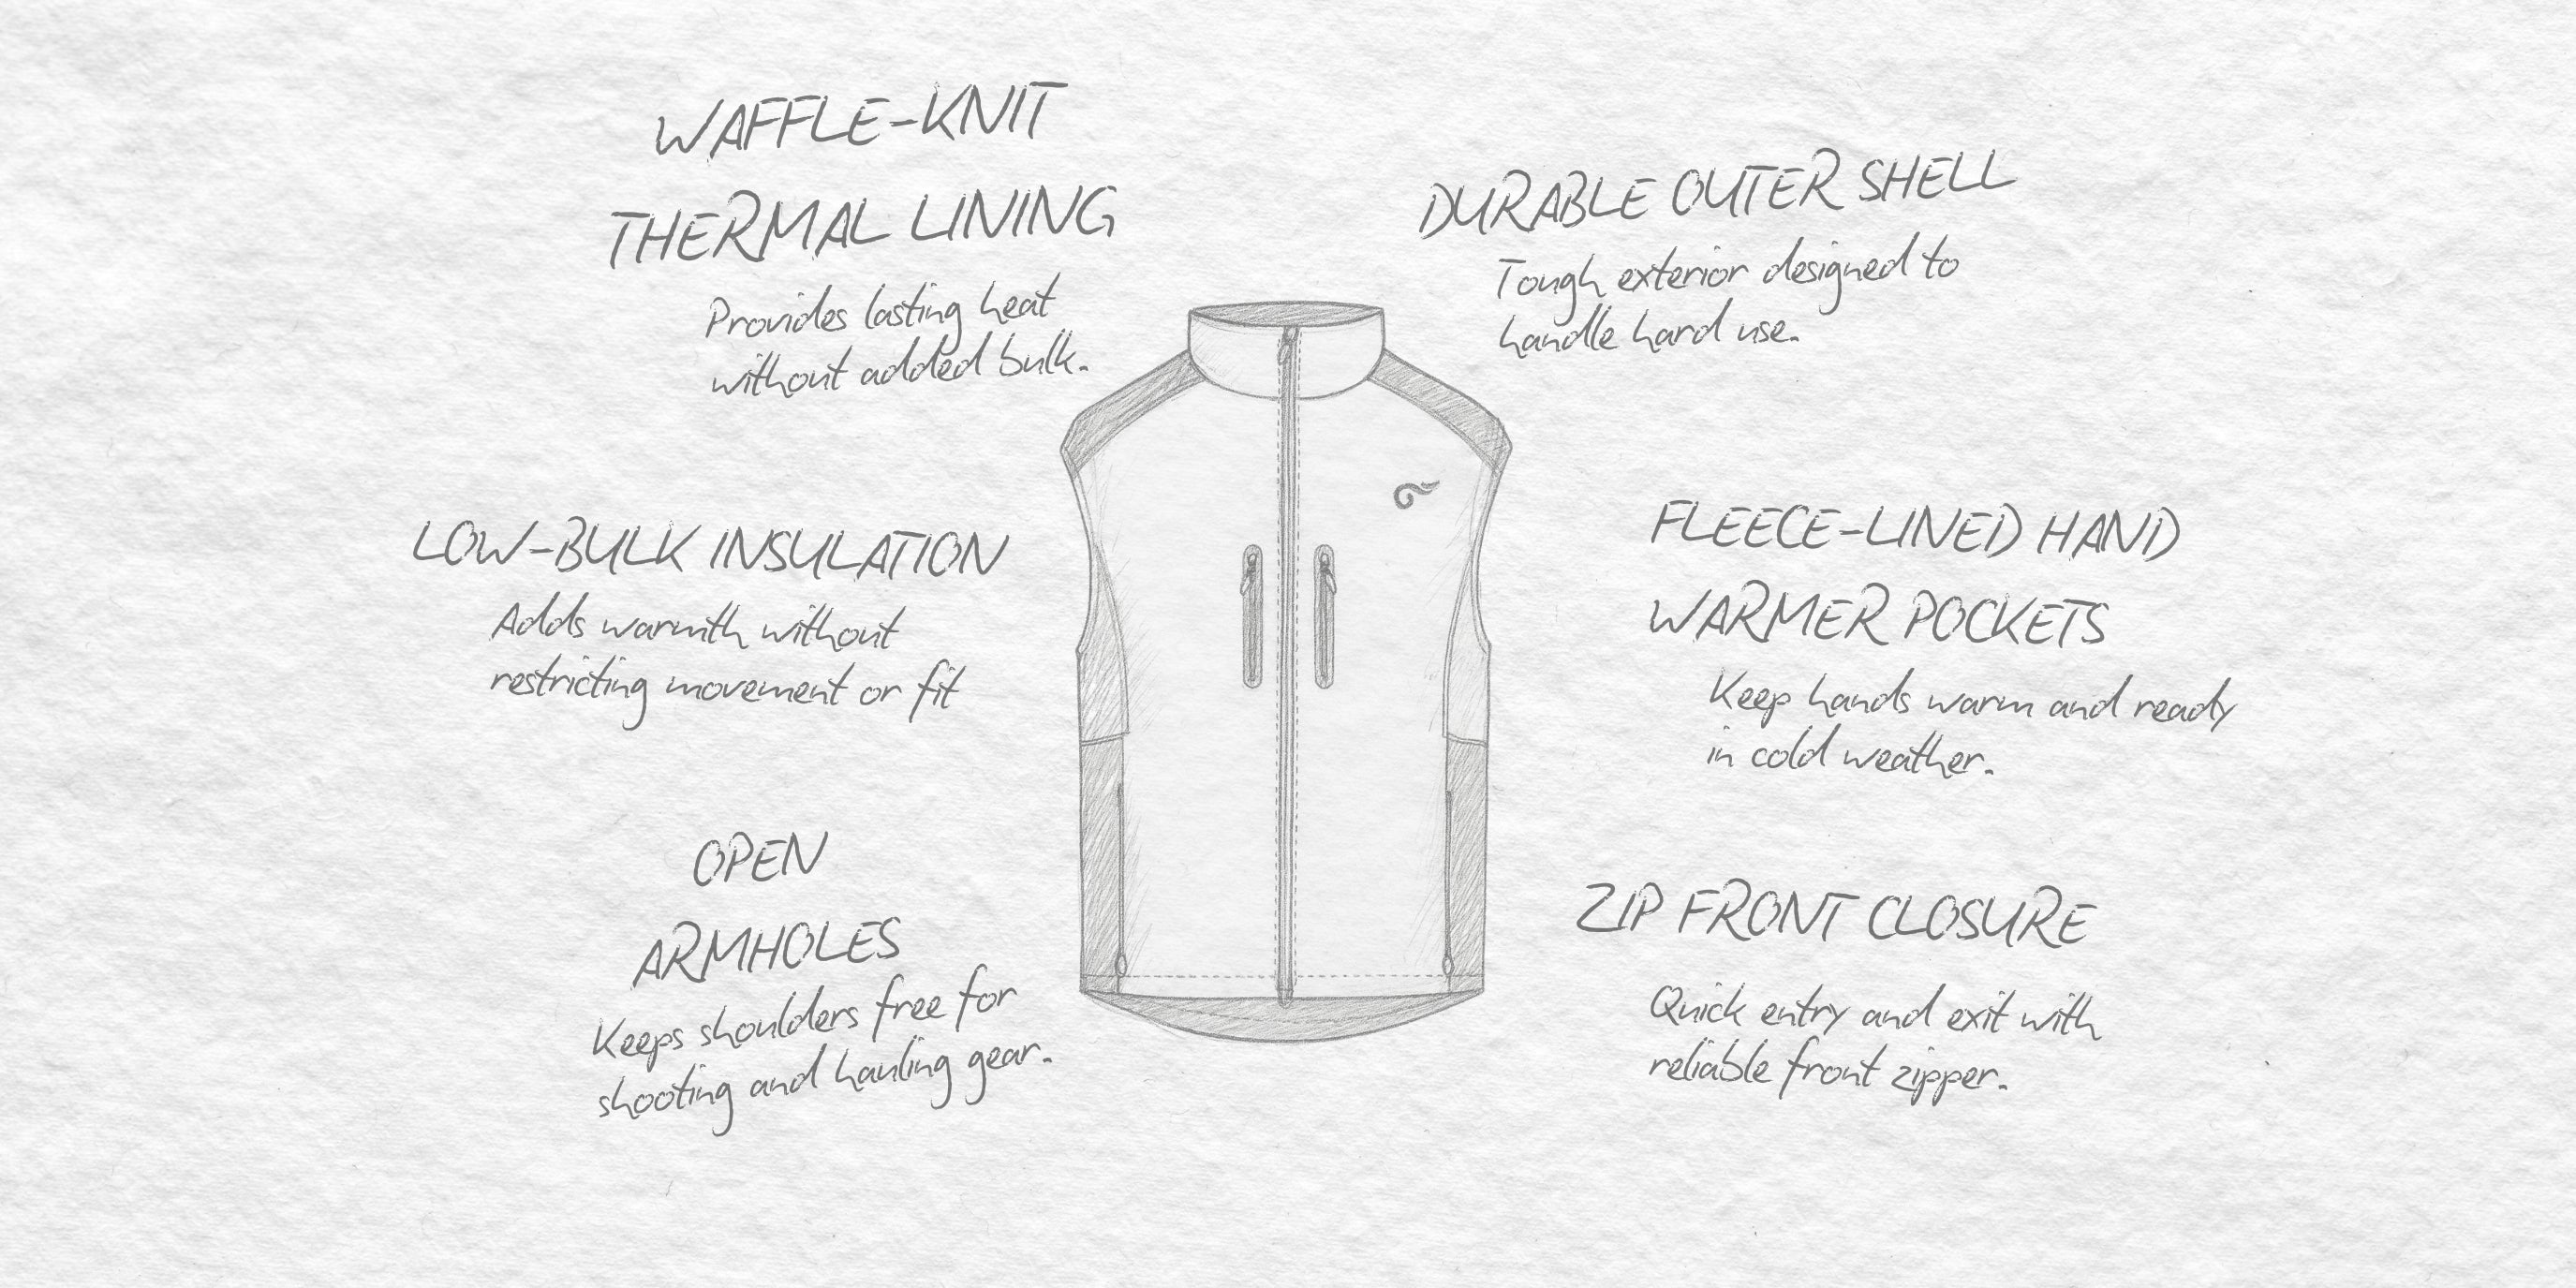 WAFFLE-KNIT
THERMAL LINING
Provides lasting heat
without added bulk.
LOW-BULK INSULATION
Adds warmth without
restricting movement or fit
OPEN
ARMHOLES
Keeps shoulders free for
shooting and hauling gear.
DURABLE OUTER SHELL
Tough exterior designed to
handle hard use.
FLEECE-LINED HAND
WARMER POCKETS
Keep hands warm and ready
in cold weather.
ZIP FRONT CLOSURE
Quick entry and exit with
reliable front zipper.